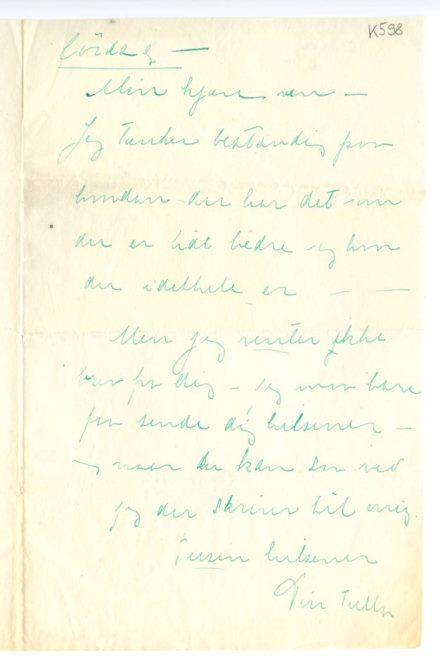 K598
Lördag —
Min kjære ven —
Jeg tænker bestandig paa
hvordan du har det – om
du er lidt bedre – og hvor
du idethele er — —
Men jeg venter ikke
brev fra dig – jeg vil bare
faa sende dig hilsener —
naar du kan saa ved
jeg du skriver til mig.
Tusen hilsener
Din Tulla